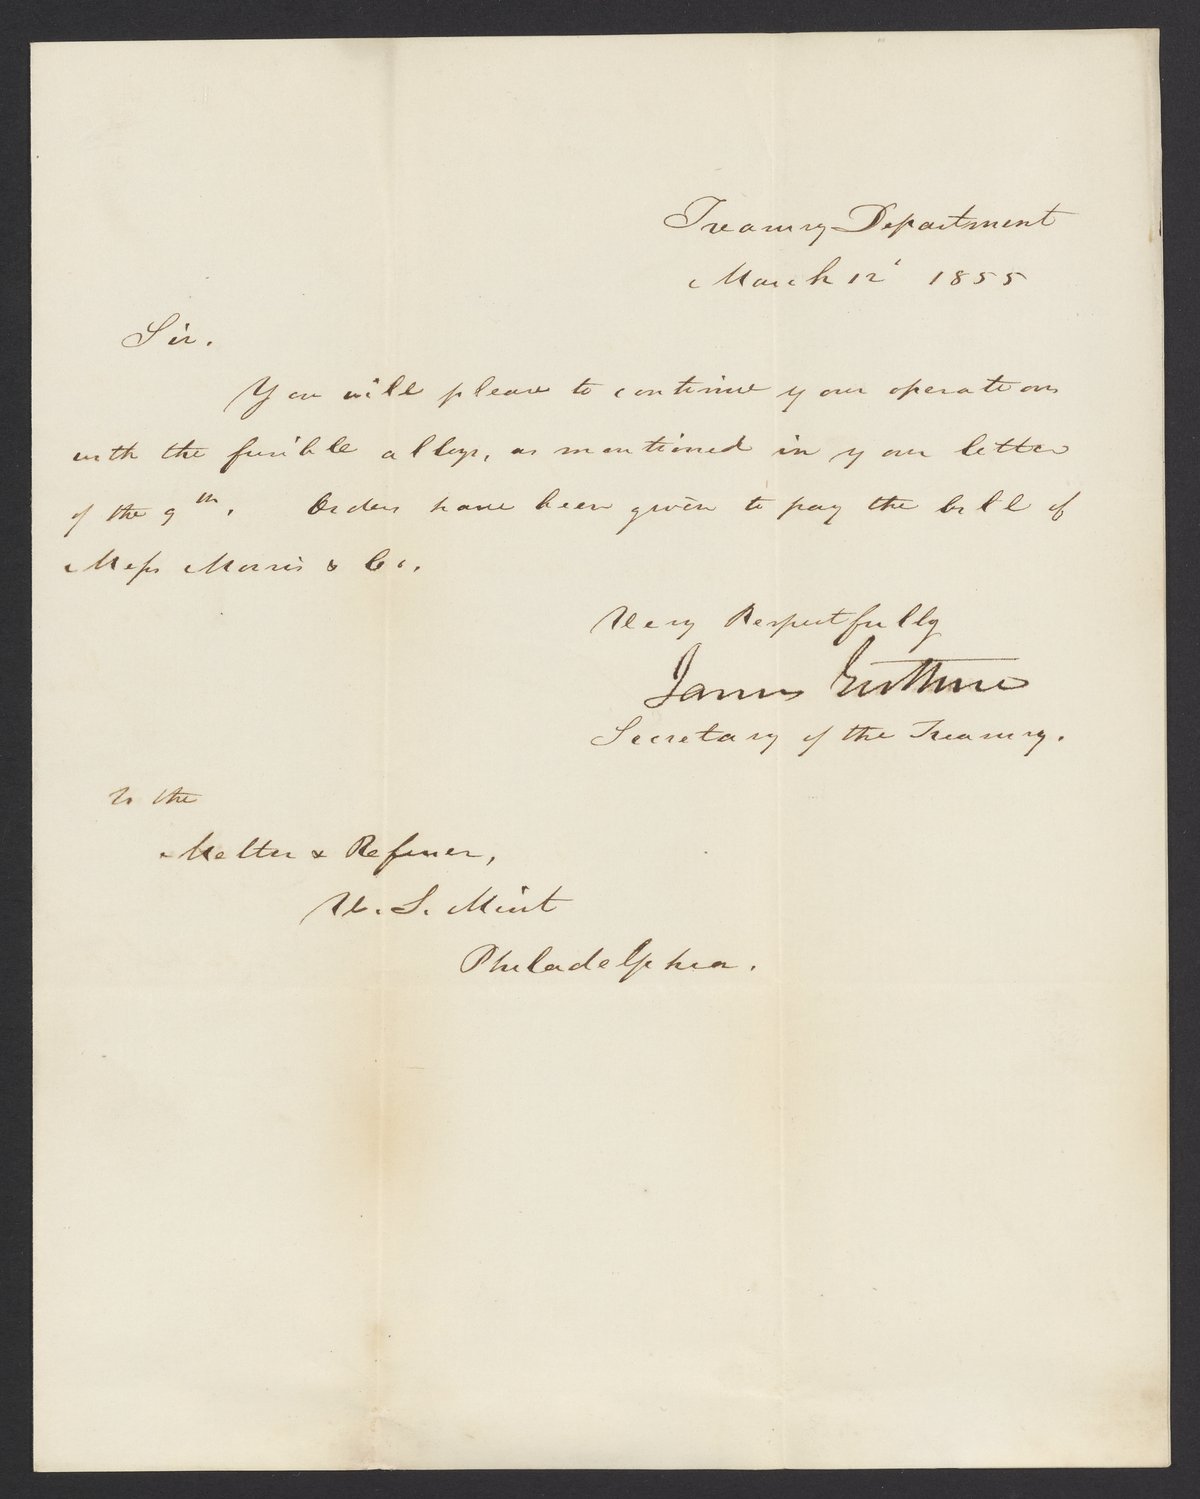 Treasury Department
March 12' 1855
Sir.
You will please to continue your operations
with the fusible alloys, as mentioned in your letter
of the 9th. Orders have been given to pay the bill of
Mess Morris & Co.
Very Respectfully
James Guthrie
Secretary of the Treasury.
To the
Melter & Refiner,
U. S. Mint
Philadelphia.